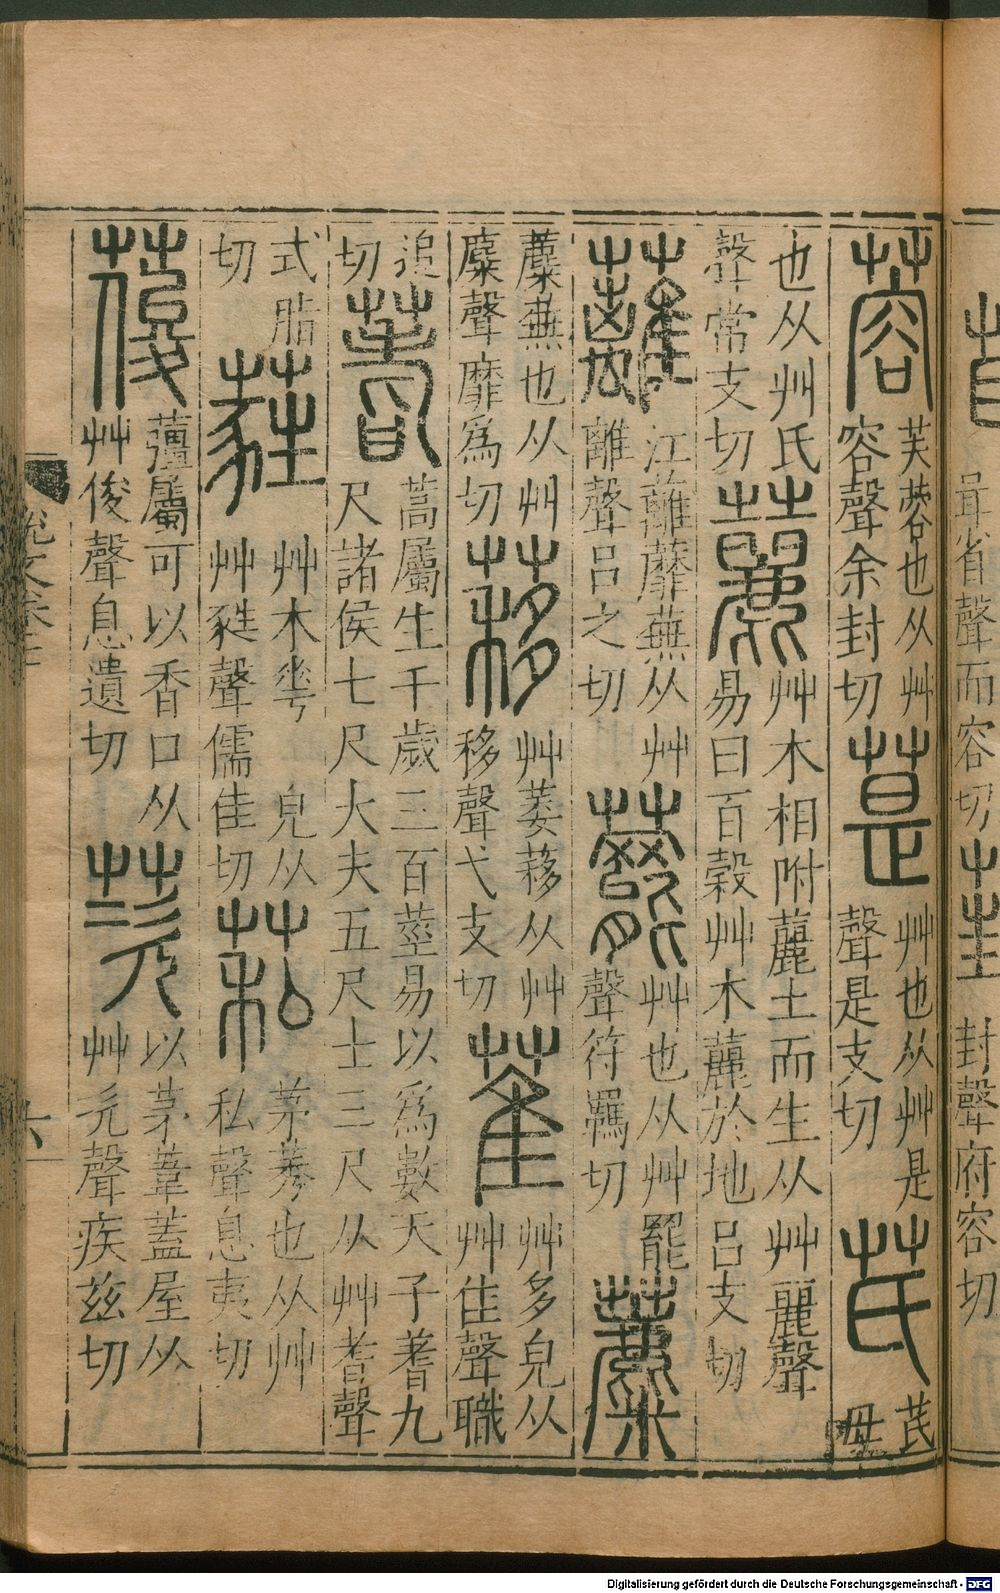 茸省聲而容切
封聲府容切
蓉
芙蓉也从艸
容聲余封切
葟
艸也从艸是
聲是支切
芪
芪母
也从艸氏
聲常支切
艸木相附䕻土而生从艸麗聲
易曰百穀艸木䕻於地呂支切
蘺
江蘺蘼蕪从艸
離聲呂之切
艸也从艸罷
聲符羈切
蘪
蘪蕪也从艸
麋聲靡為切
艸萎䔟从艸
移聲弋支切
萑
艸多皃从
艸隹聲職
追切
蓍
蒿屬生千歲三百莖易以為數天子蓍九
尺諸侯七尺大夫五尺士三尺从艸耆聲
式脂切
艸木華皃从
艸甤聲儒隹切
私
茅莠也从艸
私聲息夷切
葰
薑屬可以香口从
艸俊聲息遺切
茨
以茅葦蓋屋从
艸次聲疾茲切
說文卷
六
Digitalisierung gefördert durch die Deutsche Forschungsgemeinschaft - DFG